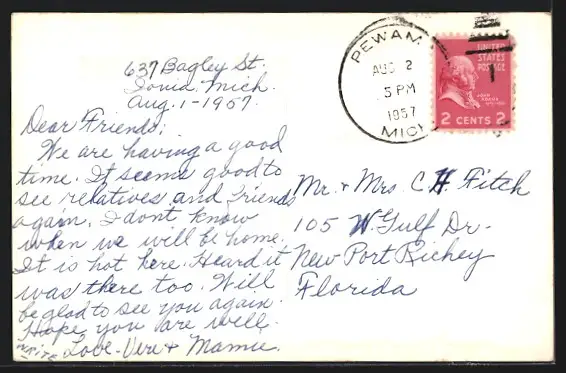 637 Bagley St.
Ionia, Mich.
Aug. 1-1957.
Dear Friends;
We are having a good
time. It seems good to
see relatives and friends
again. I dont know
when we will be home.
It is hot here. Heard it
was there too. Will
be glad to see you again.
Hope you are well.
WRITE Love - Vere + Mamie.
PEWAMO
AUG 2
5 PM
1957
MICH
UNITED
STATES
POSTAGE
JOHN
ADAMS
2 CENTS 2
Mr. + Mrs. C H Fitch
105 W. Gulf Dr-
New Port Richey
Florida